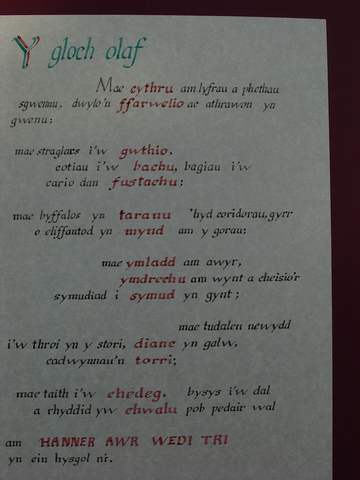 Y gloch olaf
Mae cythru am lyfrau a phethau
sgwennu, dwylo'n ffarwelio ac athrawon yn
gwenu;
mae straglars i'w gwthio,
cotiau i'w bachu, bagiau i'w
cario dan fustachu;
mae byffalos yn taranu 'hyd coridorau, gyrr
o eliffantod yn mynd am y gorau;
mae ymladd am awyr,
ymdrechu am wynt a cheisio'r
symudiad i symud yn gynt;
mae tudalen newydd
i'w throi yn y stori, diane yn galw,
cadwynnau'n torri;
mae taith i'w ehedeg, bysys i'w dal
a rhyddid yw chwalu pob pedair wal
am HANNER AWR WEDI TRI
yn ein hysgol ni.